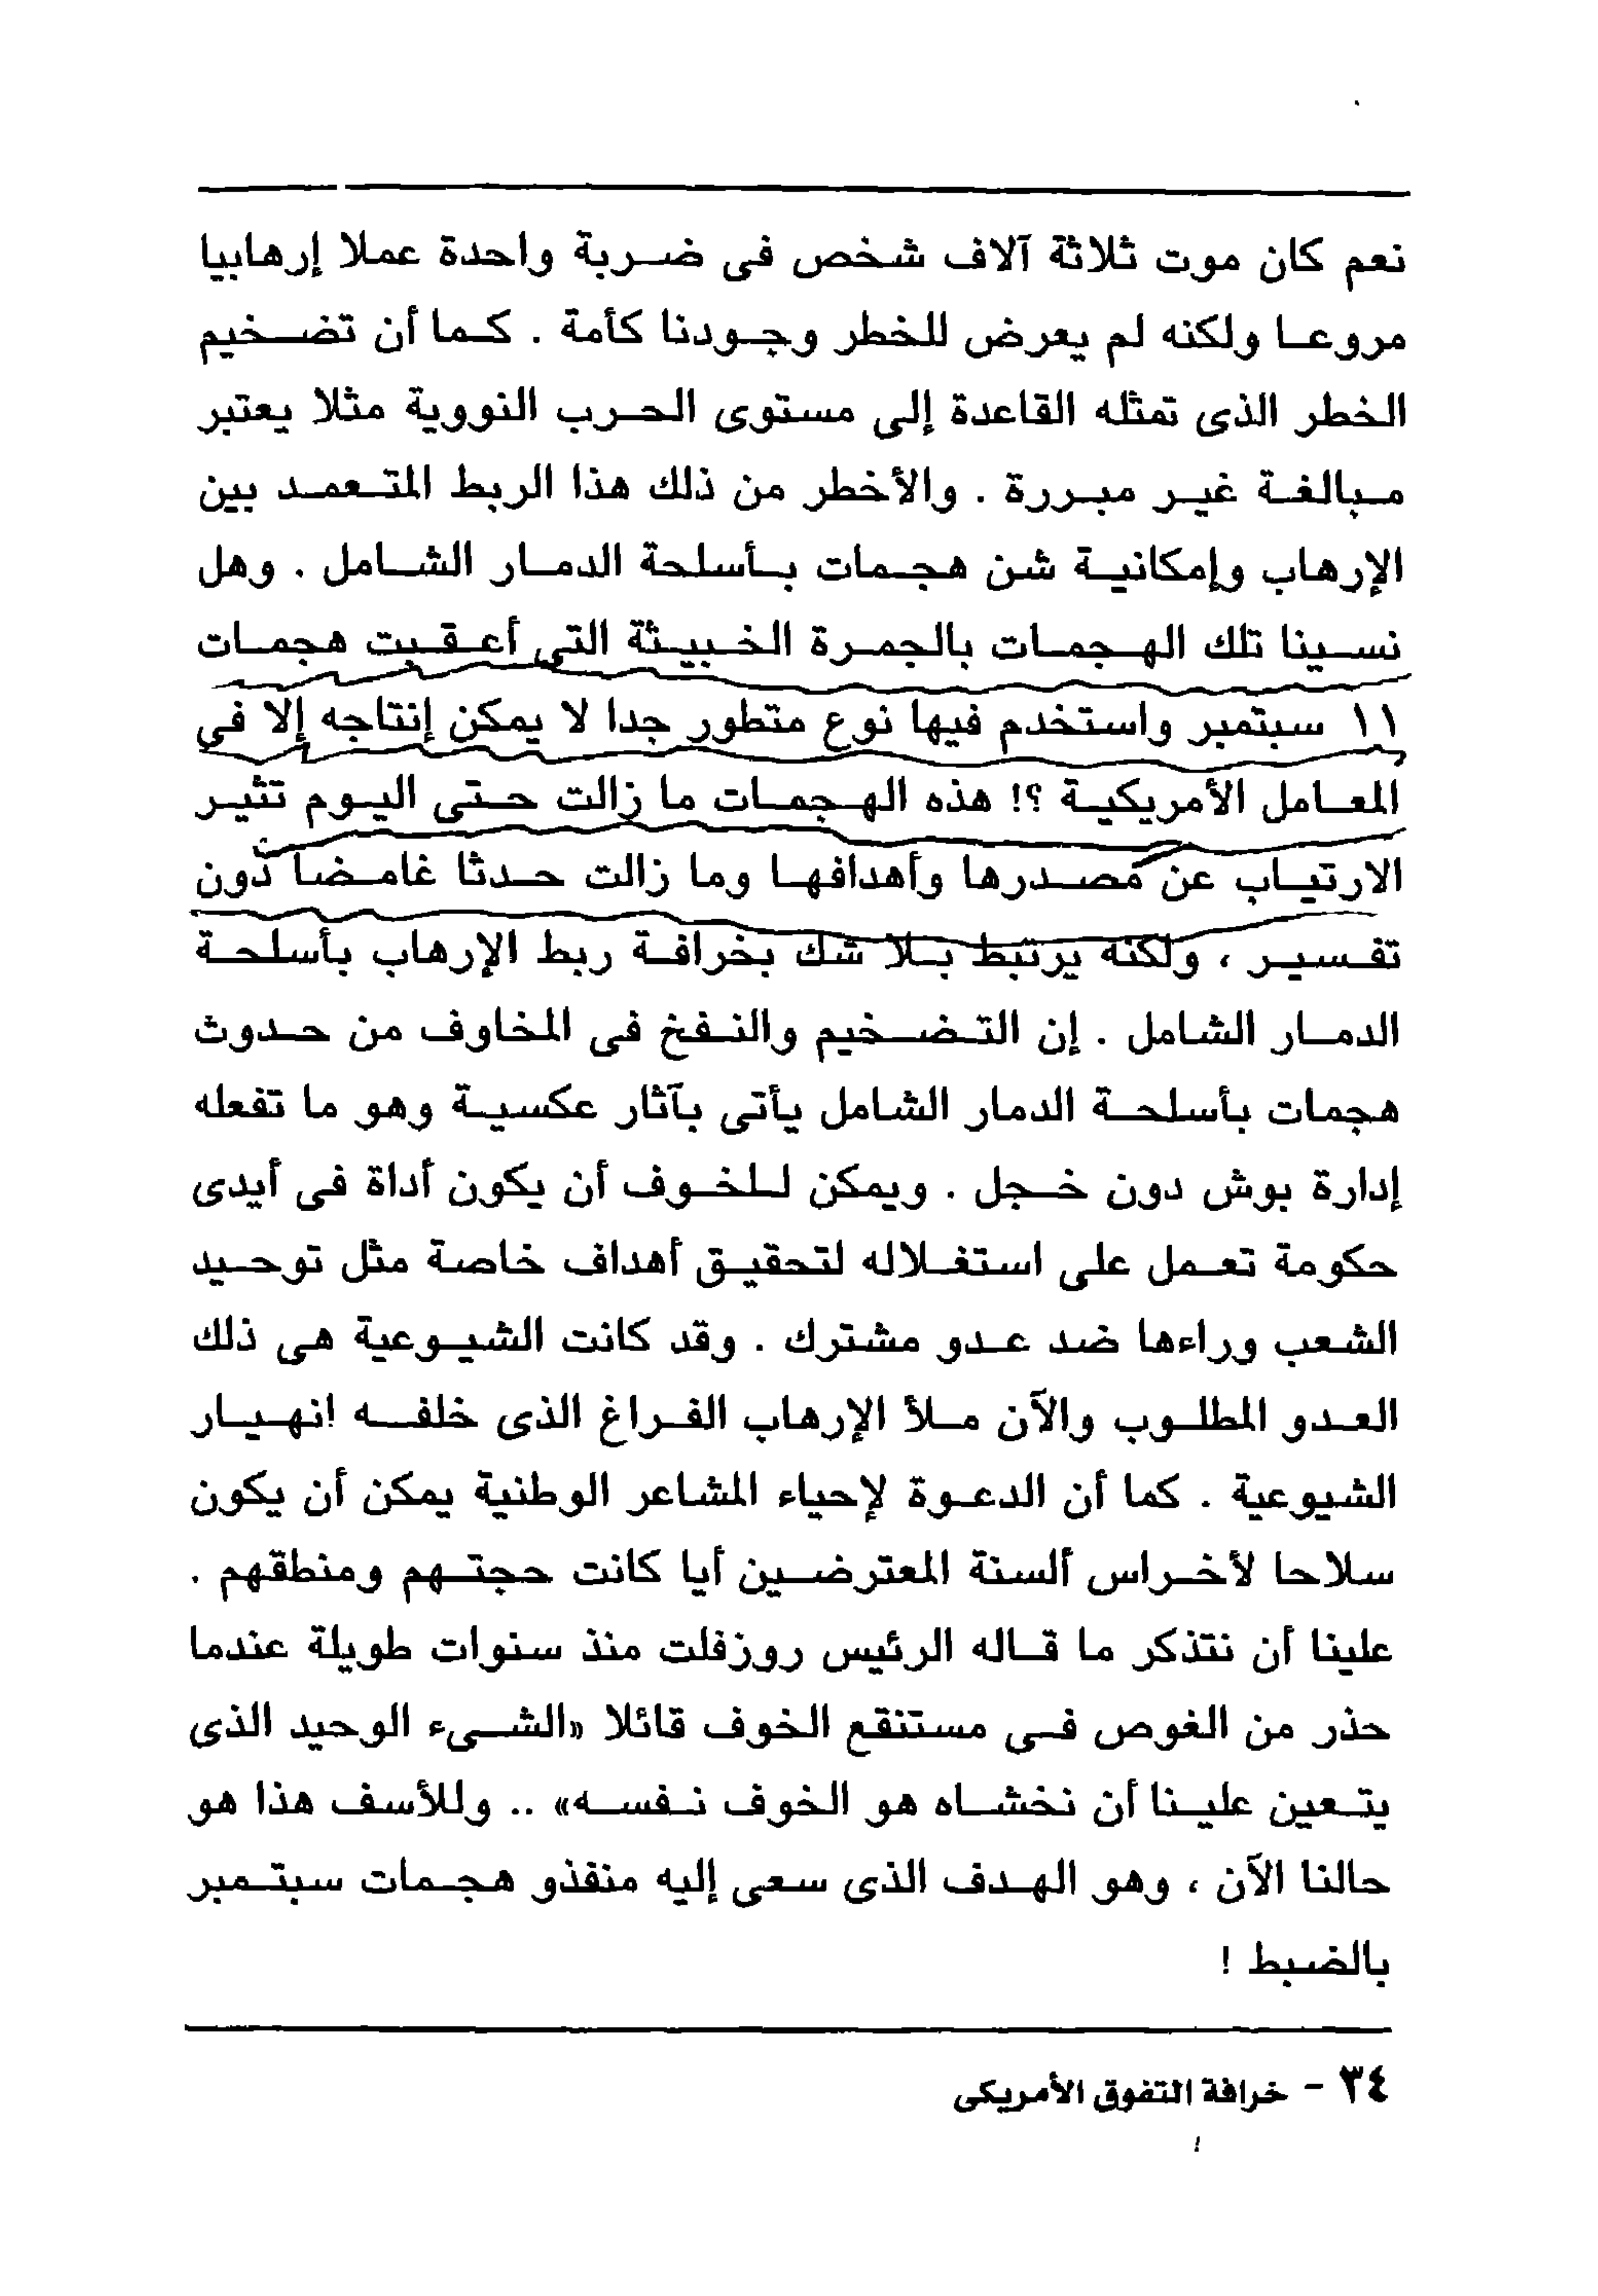 نعم كان موت ثلاثة آلاف شخص فى ضربة واحدة عملا إرهابيا
مروعا ولكنه لم يعرض للخطر وجودنا كأمة . كما أن تضخيم
الخطر الذى تمثله القاعدة إلى مستوى الحرب النووية مثلا يعتبر
مبالغة غير مبررة . والأخطر من ذلك هذا الربط المتعمد بين
الإرهاب وإمكانية شن هجمات بأسلحة الدمار الشامل . وهل
نسينا تلك الهجمات بالجمرة الخبيثة التى أعقبت هجمات
١١ سبتمبر واستخدم فيها نوع متطور جدا لا يمكن إنتاجه إلا فى
المعامل الأمريكية ؟! هذه الهجمات ما زالت حتى اليوم تثير
الارتياب عن مصدرها وأهدافها وما زالت حدثا غامضا دون
تفسير ، ولكنه يرتبط بلا شك بخرافة ربط الإرهاب بأسلحة
الدمار الشامل . إن التضخيم والنفخ فى المخاوف من حدوث
هجمات بأسلحة الدمار الشامل يأتى بآثار عكسية وهو ما تفعله
إدارة بوش دون خجل . ويمكن للخوف أن يكون أداة فى أيدى
حكومة تعمل على استغلاله لتحقيق أهداف خاصة مثل توحيد
الشعب وراءها ضد عدو مشترك . وقد كانت الشيوعية هى ذلك
العدو المطلوب والآن ملأ الإرهاب الفراغ الذى خلفه انهيار
الشيوعية . كما أن الدعوة لإحياء المشاعر الوطنية يمكن أن يكون
سلاحا لأخراس ألسنة المعترضين أيا كانت حجتهم ومنطقهم .
علينا أن نتذكر ما قاله الرئيس روزفلت منذ سنوات طويلة عندما
حذر من الغوص فى مستنقع الخوف قائلا «الشىء الوحيد الذى
يتعين علينا أن نخشاه هو الخوف نفسه» .. وللأسف هذا هو
حالنا الآن ، وهو الهدف الذى سعى إليه منفذو هجمات سبتمبر
بالضبط !
٣٤ - خرافة التفوق الأمريكى